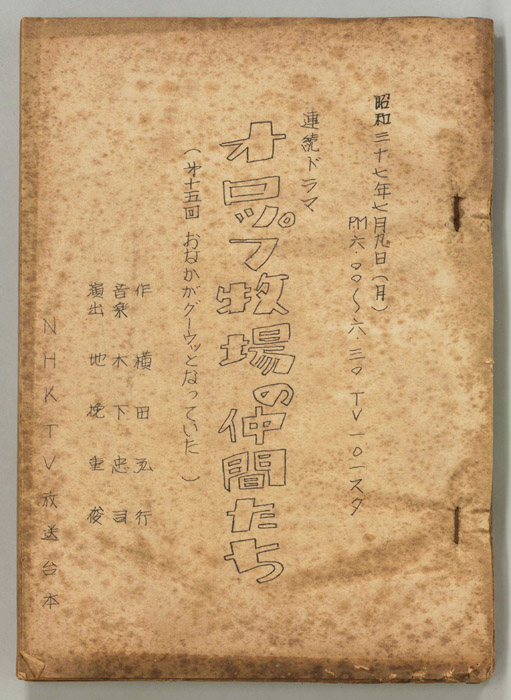 昭和三十七年七月九日(月)
PM六・〇〇~六・三〇 TV一〇一スタ
連続ドラマ
オロップ牧場の仲間たち
(第十五回 おなかがグーウッとなっていた)
作 横田弘行
音楽 木下忠司
演出 地挽重俊
NHKTV放送台本